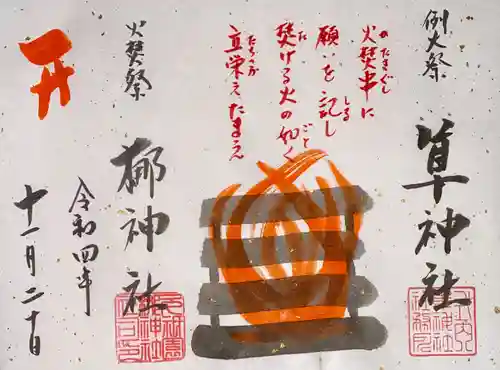 例大祭
草神社
火焚串に
願いを記し
焚ける火の如く
立栄えたまえ
火焚祭
梛神社
令和四年
十一月二十日